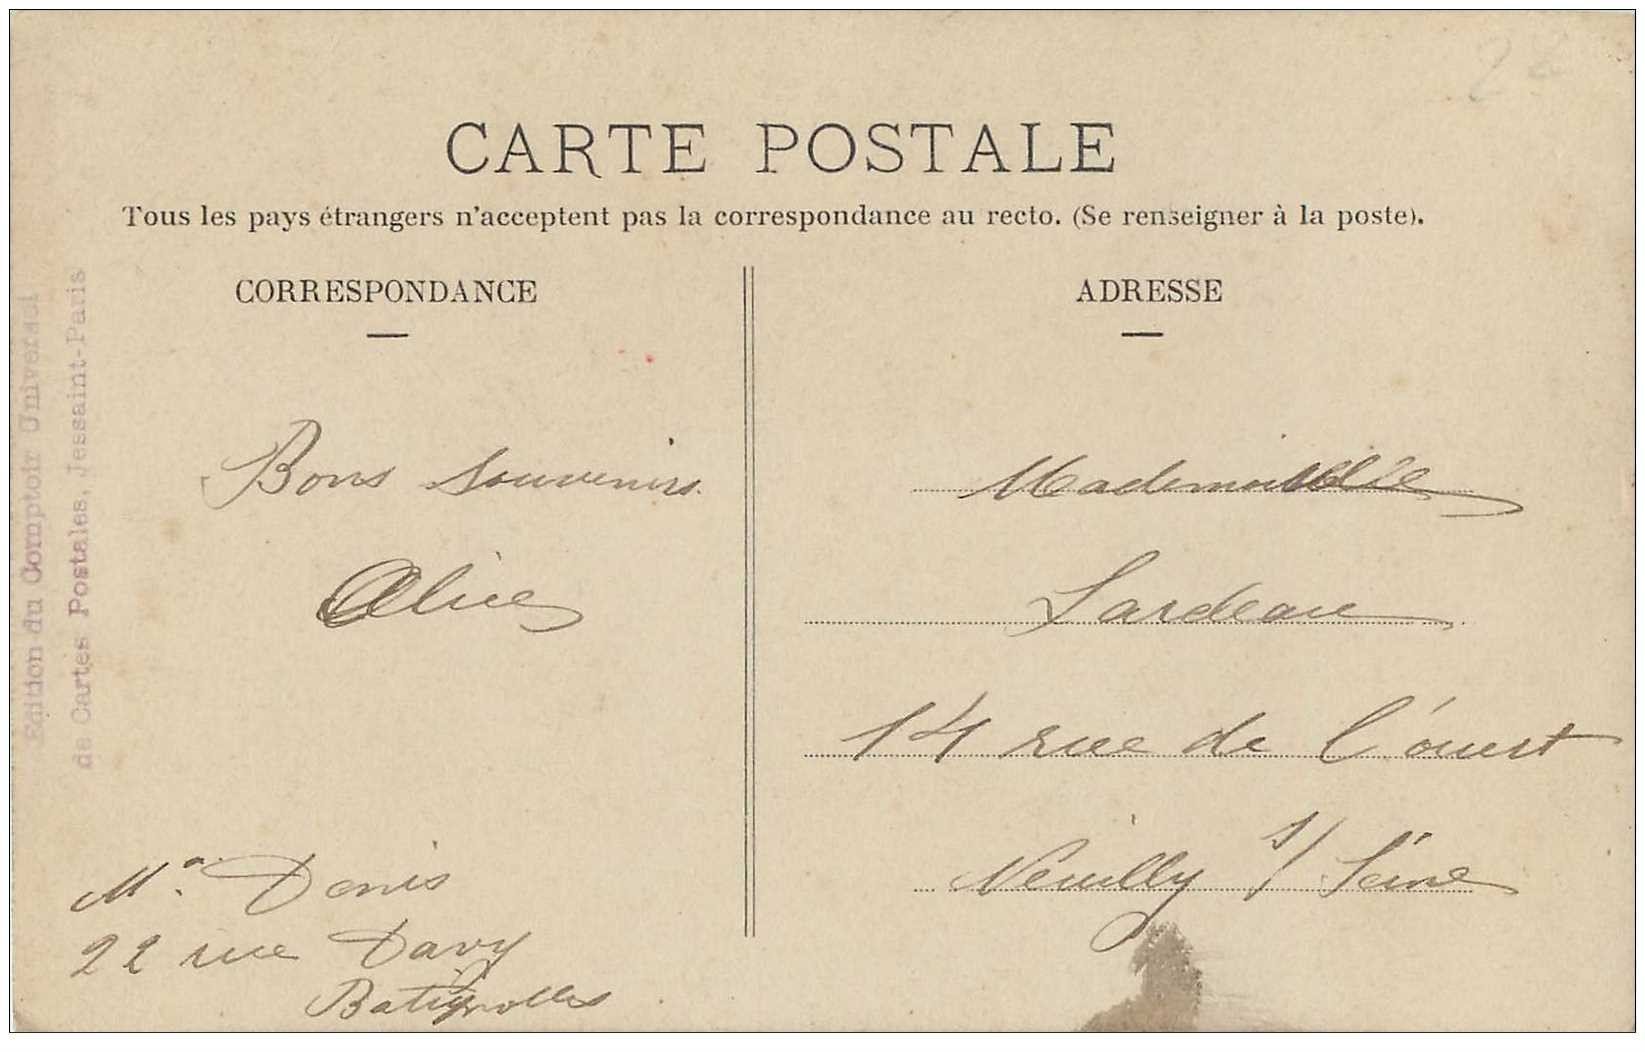 CARTE POSTALE
Tous les pays étrangers n'acceptent pas la correspondance au recto. (Se renseigner à la poste).
CORRESPONDANCE
Bons Souvenirs.
Alice
Mⁿ. Denis
22 rue Davy
Batignolles
ADRESSE
Mademoiselle
Lardeau
14 rue de l'ouest
Neuilly s/ Seine
Edition du Comptoir Universel
de Cartes Postales, Jessaint-Paris